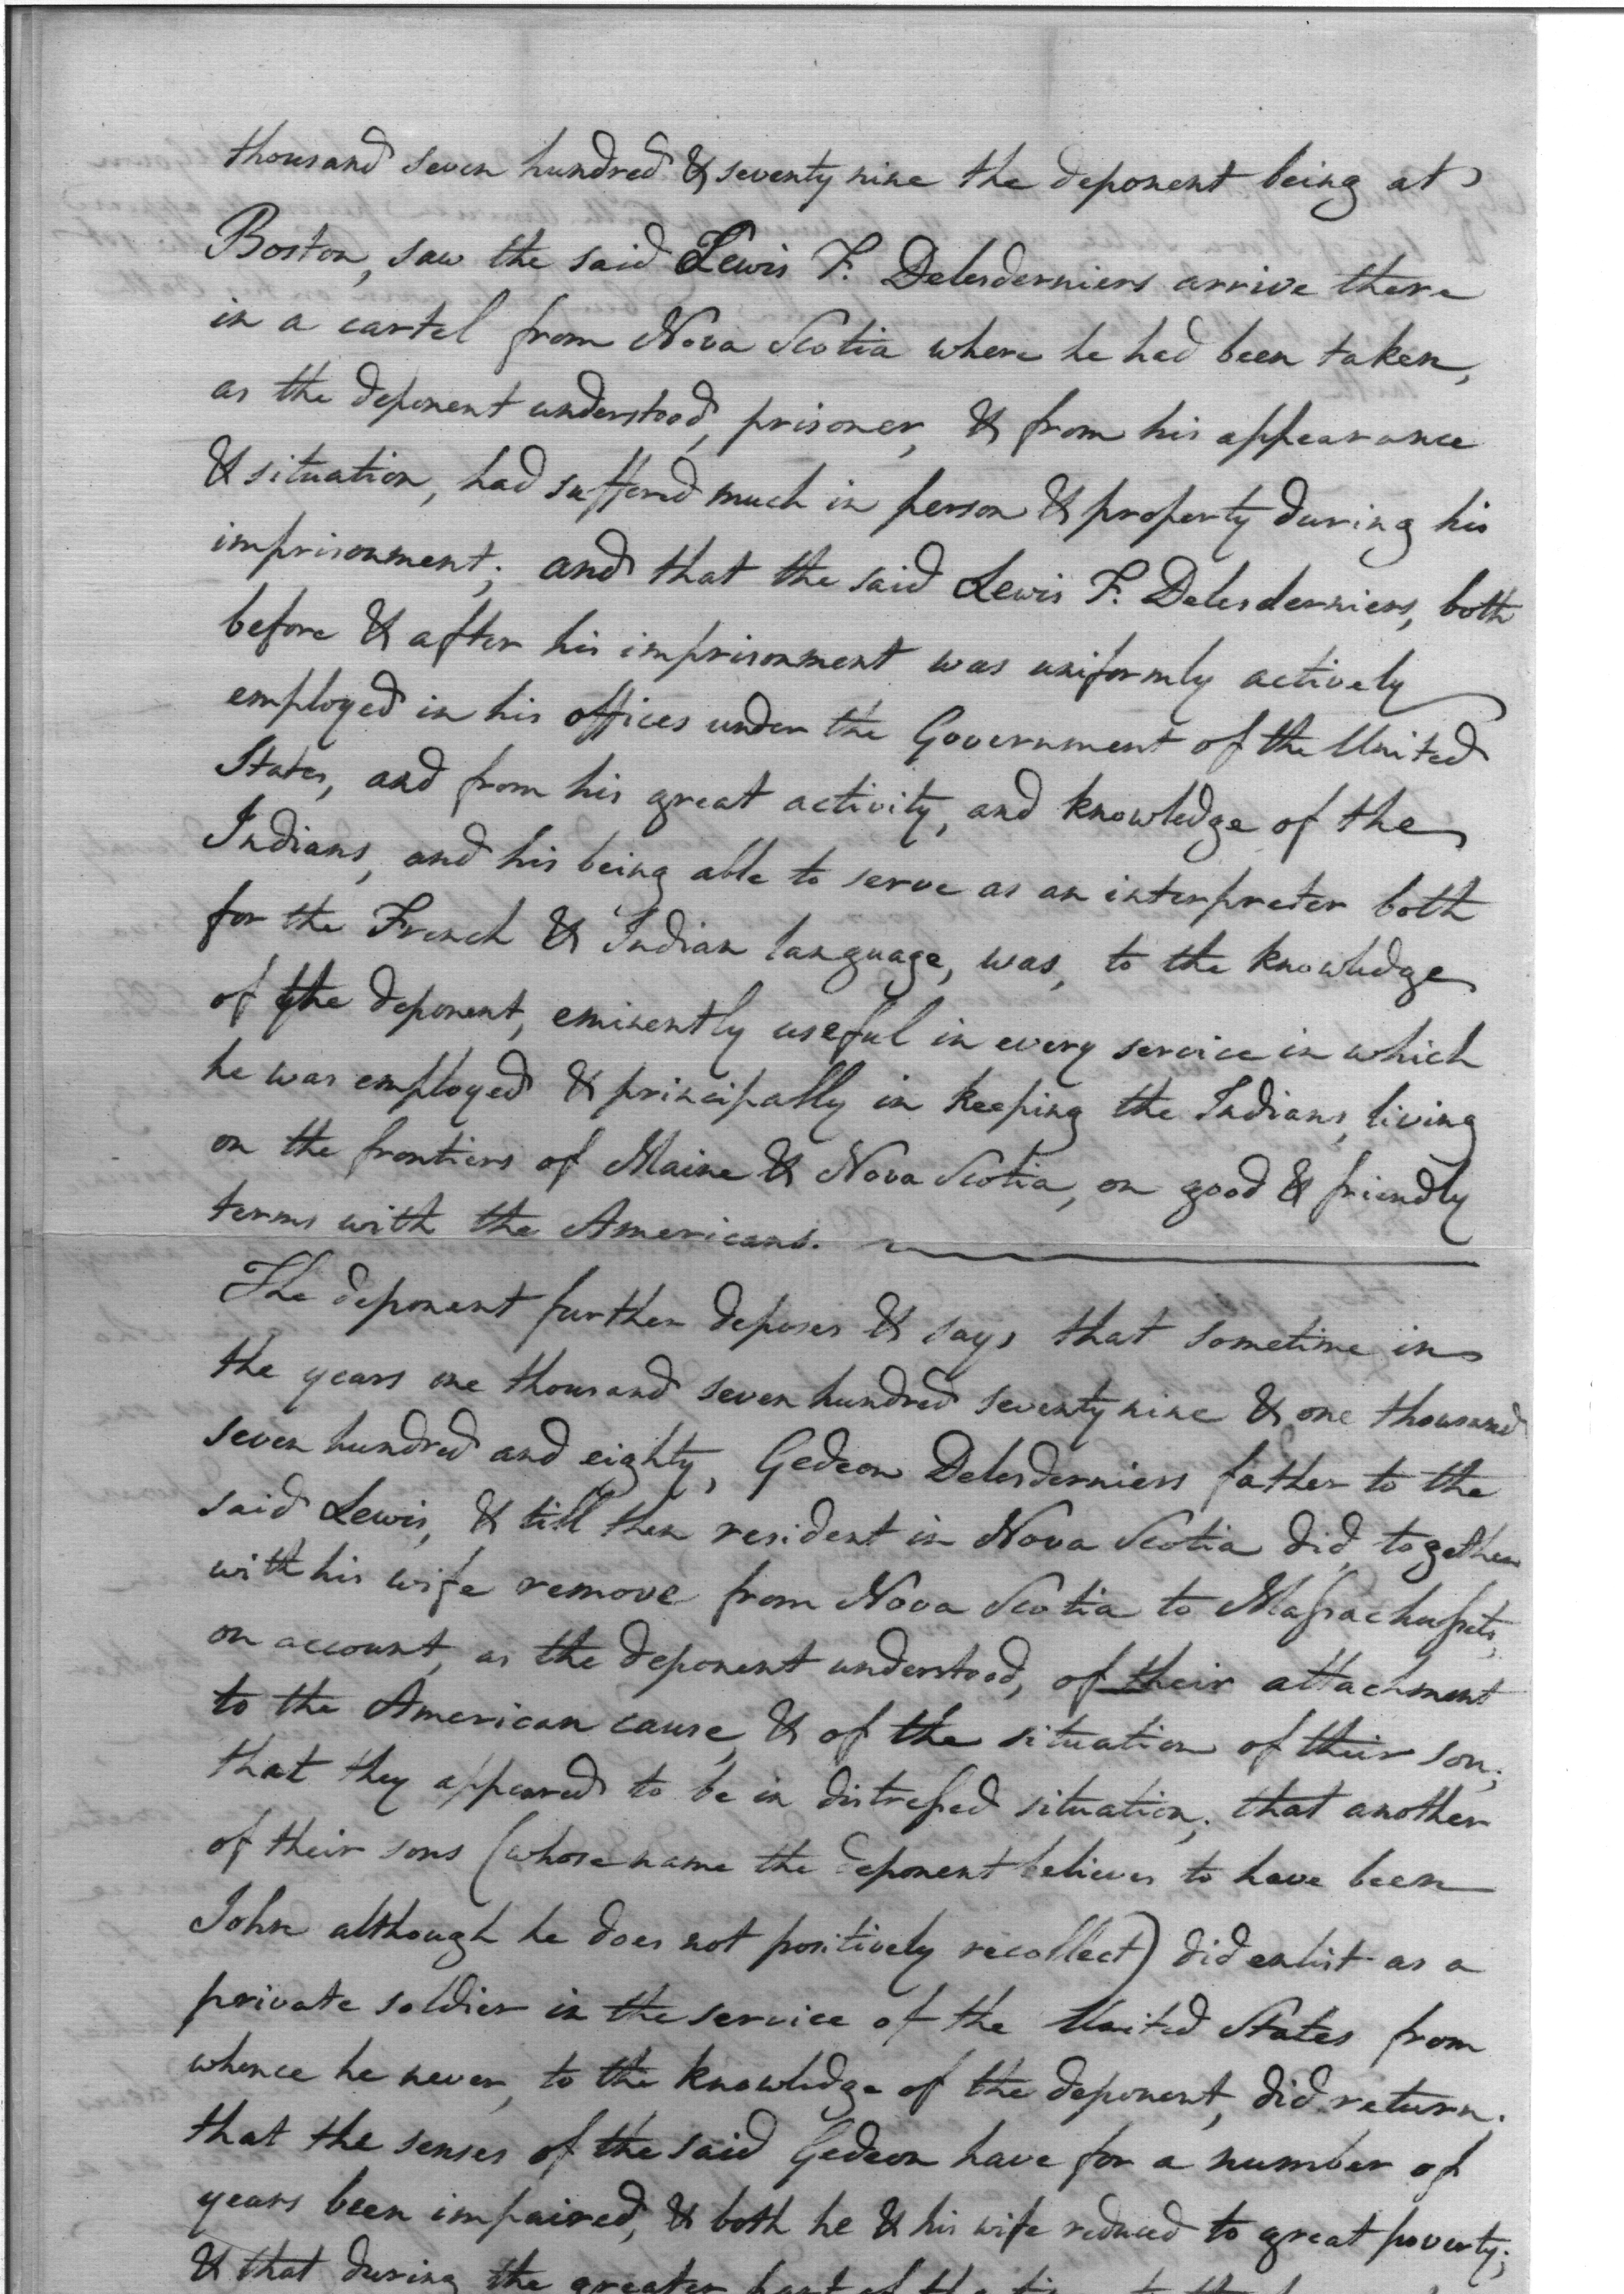 thousand seven hundred & seventy nine the deponent being at
Boston, saw the said Lewis F. Delesderniers arrive there
in a cartel from Nova Scotia where he had been taken,
as the deponent understood, prisoner, & from his appearance
& situation, had suffered much in person & property during his
imprisonment; and that the said Lewis F. Delesderniers, both
before & after his imprisonment was uniformly actively
employed in his offices under the Government of the United
States, and from his great activity, and knowledge of the
Indians, and his being able to serve as an interpreter both
for the French & Indian language, was, to the knowledge
of the deponent, eminently useful in every service in which
he was employed & principally in keeping the Indians, living
on the frontiers of Maine & Nova Scotia, on good & friendly
terms with the Americans.
The deponent further deposes & says that sometime in
the years one thousand seven hundred seventy nine & one thousand
seven hundred and eighty, Gedeon Delesderniers father to the
said Lewis, & till then resident in Nova Scotia did, together
with his wife remove from Nova Scotia to Massachussets,
on account, as the deponent understood, of their attachment
to the American cause, & of the situation of their son;
that they appeared to be in distressed situation; that another
of their sons (whose name the deponent believes to have been
John although he does not positively recollect) did enlist as a
private soldier in the service of the United States from
whence he never, to the knowledge of the deponent, did return.
that the senses of the said Gedeon have for a number of
years been impaired, & both he & his wife reduced to great poverty;
& that during the greater part of the